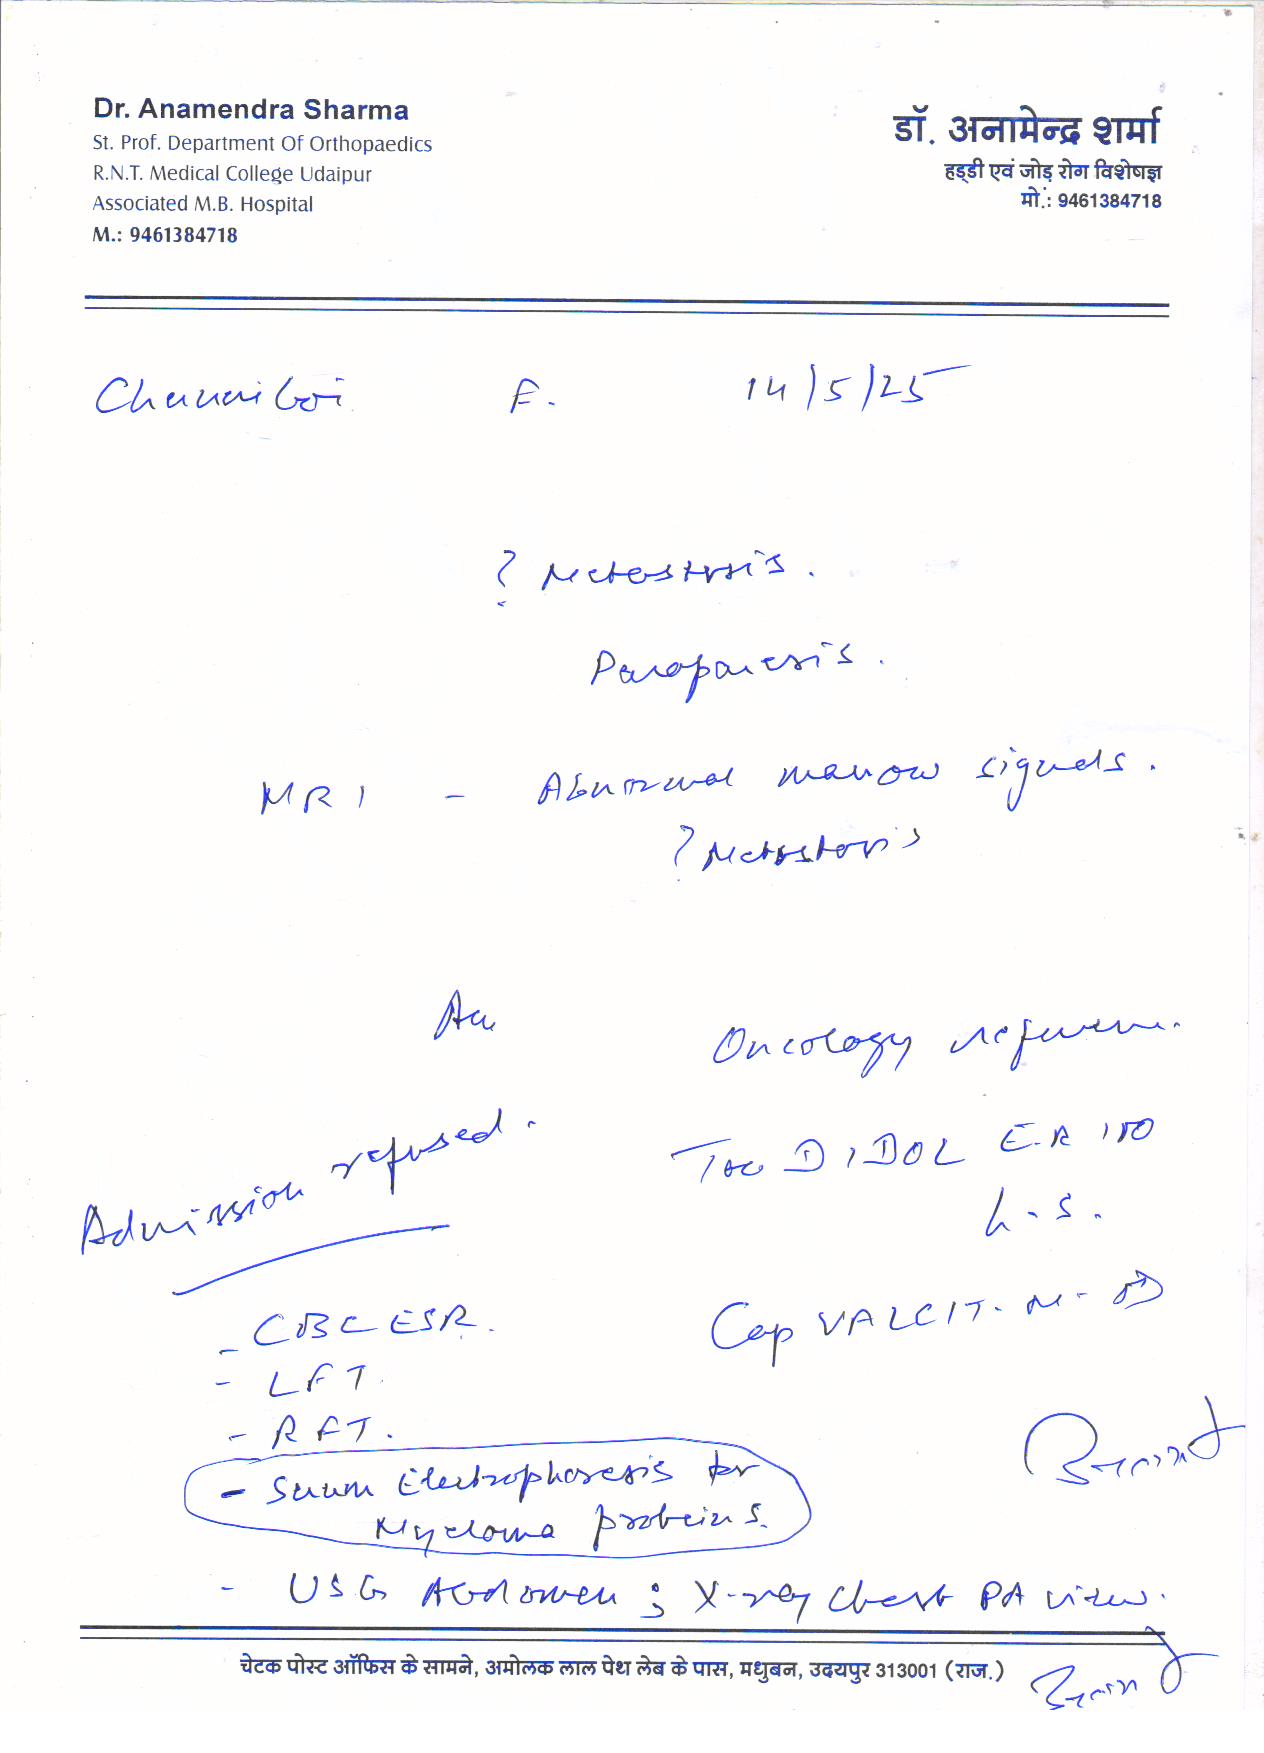 Dr. Anamendra Sharma
St. Prof. Department Of Orthopaedics
R.N.T. Medical College Udaipur
Associated M.B. Hospital
M.: 9461384718
डॉ. अनामेन्द्र शर्मा
हड्डी एवं जोड़ रोग विशेषज्ञ
मो.: 9461384718
F. 14/5/25
? Metastasis.
Paraparesis.
MRI - Abnormal marrow signals.
? Metastasis
Adv
Oncology reference.
Admission refused.
Tab DIDOL E.R 100
h.s.
Cap VALCIT-M- OD
- CBC ESR.
- LFT.
- RFT.
- Serum Electrophoresis for
Myeloma proteins.
- USG Abdomen ; X-ray Chest PA view.
चेटक पोस्ट ऑफिस के सामने, अमोलक लाल पेथ लेब के पास, मधुबन, उदयपुर 313001 (राज.)